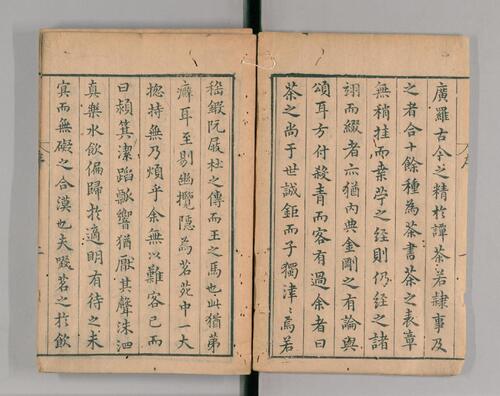 廣羅古今之精於譚茶若隸事及
之者合十餘種為茶書茶之表章
無稍挂而桑苧之經則仍經之諸
翊而綴者亦猶內典金剛之有論與
頌耳方付殺青而客有過余者曰
茶之尚于世誠鉅而子獨津〻焉若
嵇鍛阮屐杜之傳而王之馬也此猶第
癖耳至剔幽攬隱為茗苑中一大
揔持無乃煩乎余無以難客已而
曰潁箕潔蹈瓢響猶厭其聲洙泗
真樂水飲偏歸於適明有待之未
㝠而無礙之合漠也夫啜茗之於飲